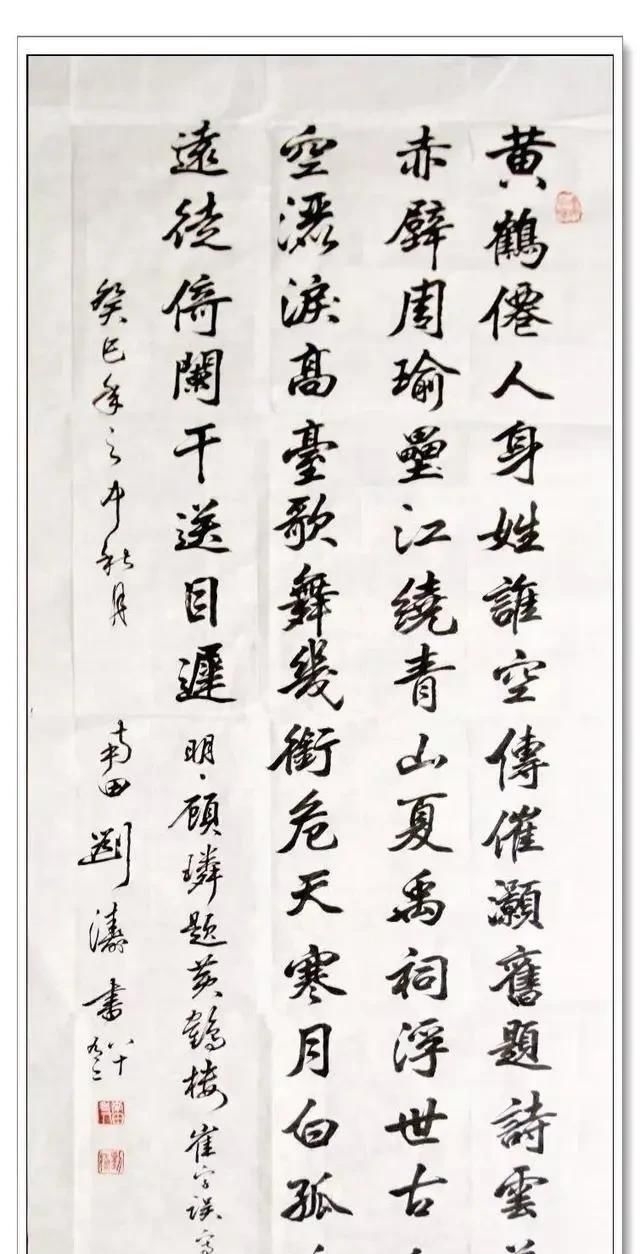 黄鶴僊人身姓誰空傳催灝舊題詩雲
赤壁周瑜壘江繞青山夏禹祠浮世古
空灑淚高臺歌舞幾銜危天寒月白孤
遠徒倚闌干送目遲 明、顾璘题黄鹤楼 崔字误
癸巳年之中秋月 南田劉濤書 八十